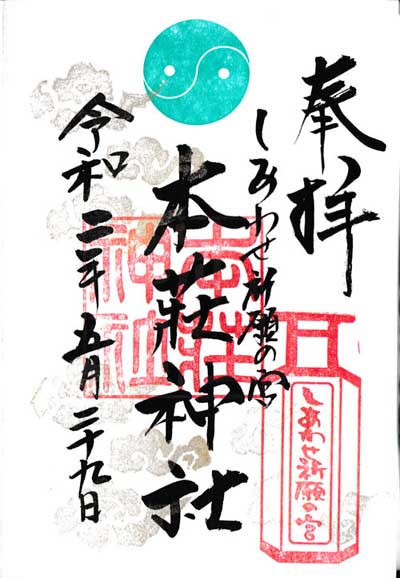 奉拝
しあわせ祈願の宮
本荘神社
令和二年五月二十九日
本荘神社
しあわせ祈願の宮